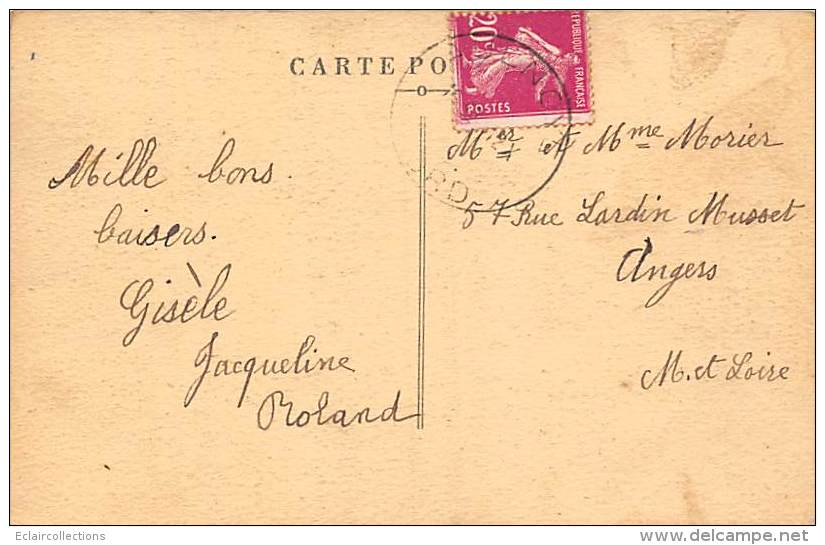 CARTE PO
20c
REPUBLIQUE FRANÇAISE
POSTES
Mille bons
baisers.
Gisèle
Jacqueline
Roland
Mr et Mme Morier
57 Rue Lardin Musset
Angers
M. et Loire
Eclaircollections
http://www.delcampe.net